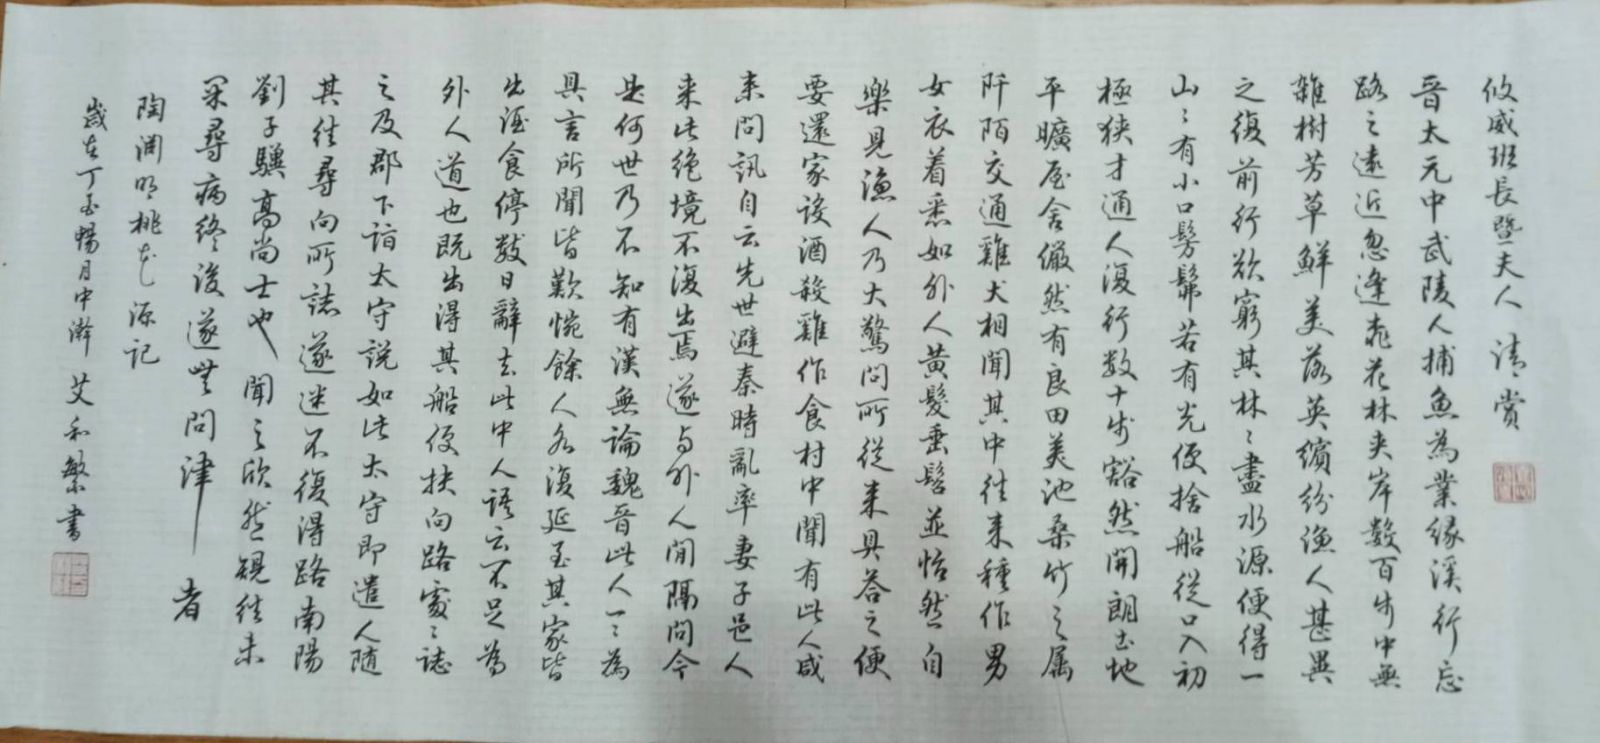 攸威班長暨夫人 清賞
晉太元中武陵人捕魚為業緣溪行忘
路之遠近忽逢桃花林夾岸數百步中無
雜樹芳草鮮美落英繽紛漁人甚異
之復前行欲窮其林〻盡水源便得一
山〻有小口髣髴若有光便捨船從口入初
極狹才通人復行数十步豁然開朗土地
平曠屋舍儼然有良田美池桑竹之属
阡陌交通雞犬相聞其中往来種作男
女衣着悉如外人黄髮垂髫並怡然自
樂見漁人乃大驚問所從来具答之便
要還家设酒殺雞作食村中聞有此人咸
来問訊自云先世避秦時亂率妻子邑人
来此绝境不復出焉遂与外人間隔問今
是何世乃不知有漢無論魏晉此人一〻為
具言所聞皆歎惋餘人各復延至其家皆
出酒食停数日辭去此中人語云不足為
外人道也既出得其船便扶向路處〻誌
之及郡下詣太守説如此太守即遣人随
其往尋向所誌遂迷不復得路南陽
劉子驥高尚士也聞之欣然規往未
果尋病终後遂無問津者
陶渊明桃花源記
歲在丁酉暢月中澣 艾和繁書